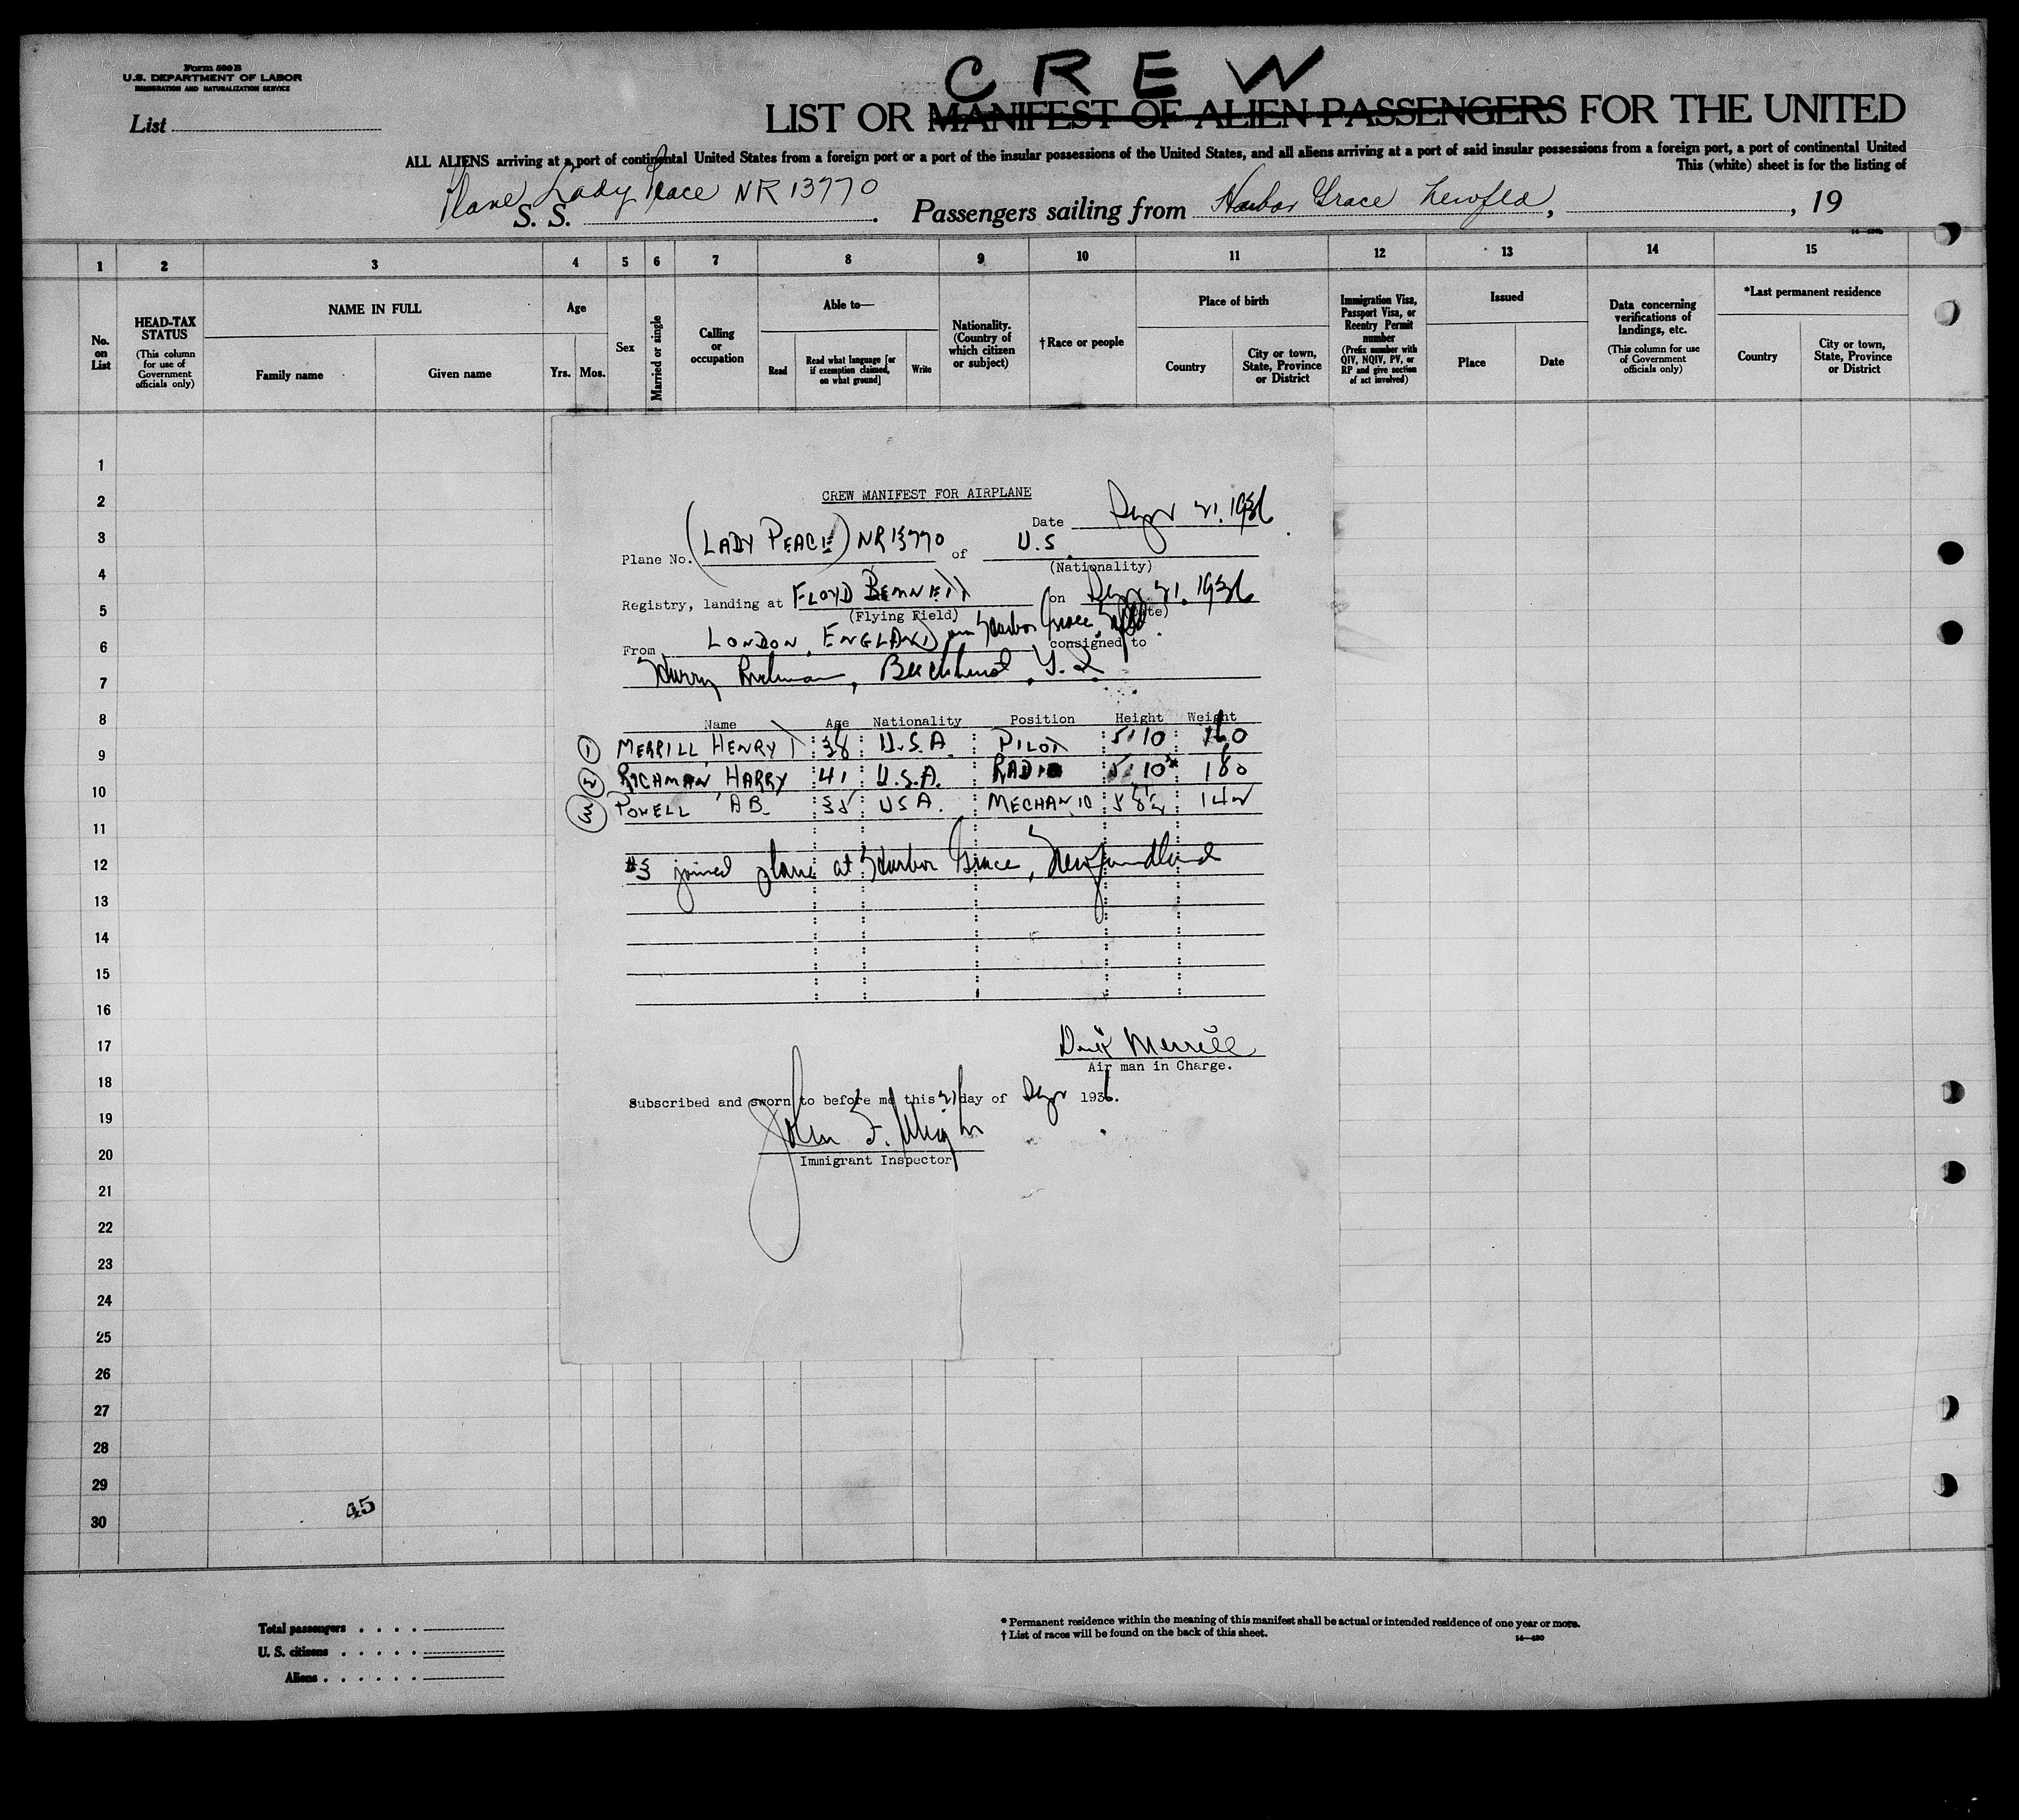 Form 500 B
U.S. DEPARTMENT OF LABOR
IMMIGRATION AND NATURALIZATION SERVICE
List
CREW
LIST OR MANIFEST OF ALIEN PASSENGERS FOR THE UNITED
ALL ALIENS arriving at a port of continental United States from a foreign port or a port of the insular possessions of the United States, and all aliens arriving at a port of said insular possessions from a foreign port, a port of continental United
This (white) sheet is for the listing of
Plane Lady Peace NR 13770
S. S. . Passengers sailing from Harbor Grace Newfld, , 19
1 2 3 4 5 6 7 8 9 10 11 12 13 14 15
No. on List
HEAD-TAX STATUS
(This column for use of Government officials only)
NAME IN FULL
Family name
Given name
Age
Yrs. Mos.
Sex
Married or single
Calling or occupation
Able to—
Read
Read what language [or if exemption claimed, on what ground]
Write
Nationality. (Country of which citizen or subject)
†Race or people
Place of birth
Country
City or town, State, Province or District
Immigration Visa, Passport Visa, or Reentry Permit number
(Prefix number with QIV, NQIV, PV, or RP and give section of act involved)
Issued
Place
Date
Data concerning verifications of landings, etc.
(This column for use of Government officials only)
*Last permanent residence
Country
City or town, State, Province or District
1
2
3
4
5
6
7
8
9
10
11
12
13
14
15
16
17
18
19
20
21
22
23
24
25
26
27
28
29
30
CREW MANIFEST FOR AIRPLANE
Date 21, 1936
Plane No. (LADY PEACE) NR 13770 of U.S.
(Nationality)
Registry, landing at FLOYD BENNETT on 21, 1936
(Flying Field) (Date)
From LONDON, ENGLAND Harbor Grace, consigned to
Harry Richman, Beechhurst,
Name Age Nationality Position Height Weight
1 MERRILL HENRY T 38 U.S.A. PILOT 5' 10 160
2 RICHMAN, HARRY 41 U.S.A. RADIO 5' 10 180
3 POWELL AB USA. MECHANIC 5 8½ 142
#3 joined plane at Harbor Grace, Newfoundland
Dick Merrill
Air man in Charge.
Subscribed and sworn to before me this 21 day of 1936.
John F.
Immigrant Inspector
45
Total passengers
U. S. citizens
Aliens
* Permanent residence within the meaning of this manifest shall be actual or intended residence of one year or more.
† List of races will be found on the back of this sheet.
14—430